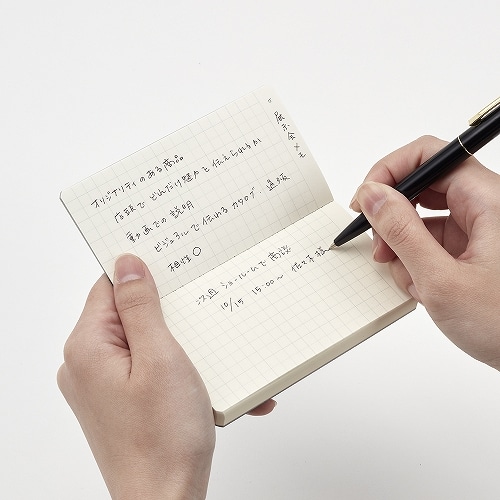 展示会メモ
オリジナリティのある商品
店頭でどれだけ魅力を伝えられるか
動画での説明
ビジュアルで伝わるカタログ、通販
相性○
次週 ショールームで商談
10/15 15:00〜 佐々木様